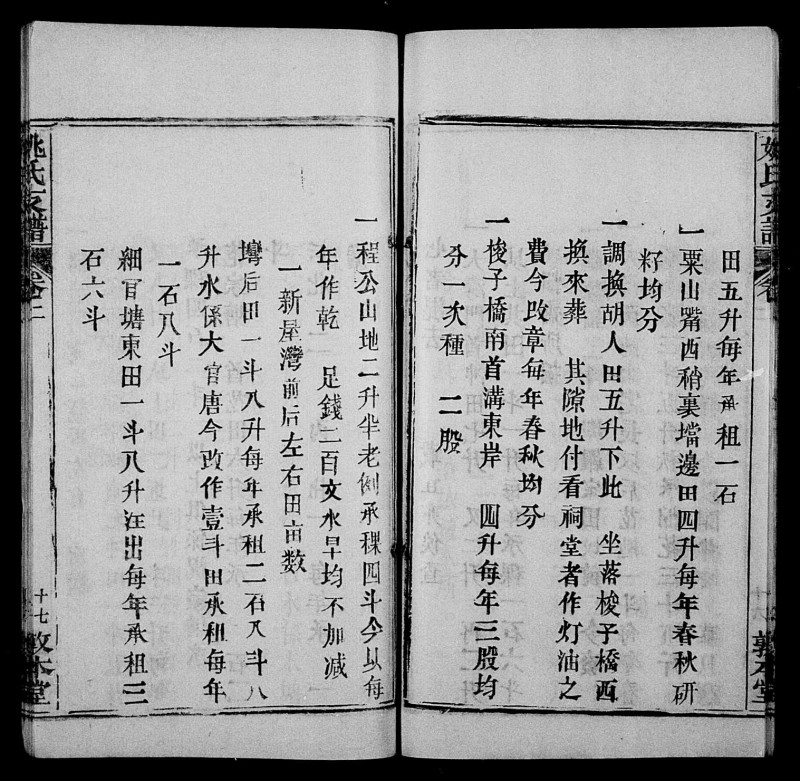 田五升每年承租一石
一粟山嘴西稍裏壋邊田四升每年春秋研
籽均分
一調換胡人田五升下此 坐落梭子橋西
換來葬 其隙地付看祠堂者作灯油之
費今改章每年春秋均分
一梭子橋南首溝東岸 四升每年三股均
分一次種 二股
一程公山地二升半老例承稞四斗今以每
年作乾 足錢二百文水旱均不加減
一新屋灣前后左右田亩数
塆后田一斗八升每年承租二石八斗八
升水係大官唐今改作壹斗田承租每年
一石八斗
細官塘東田一斗八升注出每年承租三
石六斗
姚氏支譜
卷二
十七
敦本堂